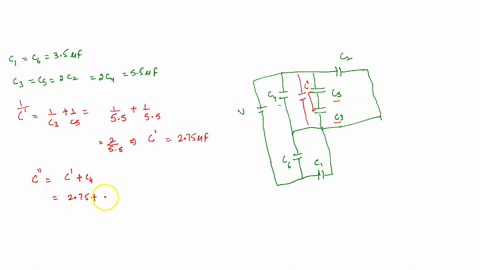 C₁ = C₆ = 3.5 μF
C₃ = C₅ = 2C₂ = 2C₄ = 5.5 μF
1/C' = 1/C₃ + 1/C₅ = 1/5.5 + 1/5.5
= 2/5.5 ⇒ C' = 2.75 μF
C'' = C' + C₄
= 2.75 +
C₂
C₄ C' C₅
V C₃
C₆ C₁